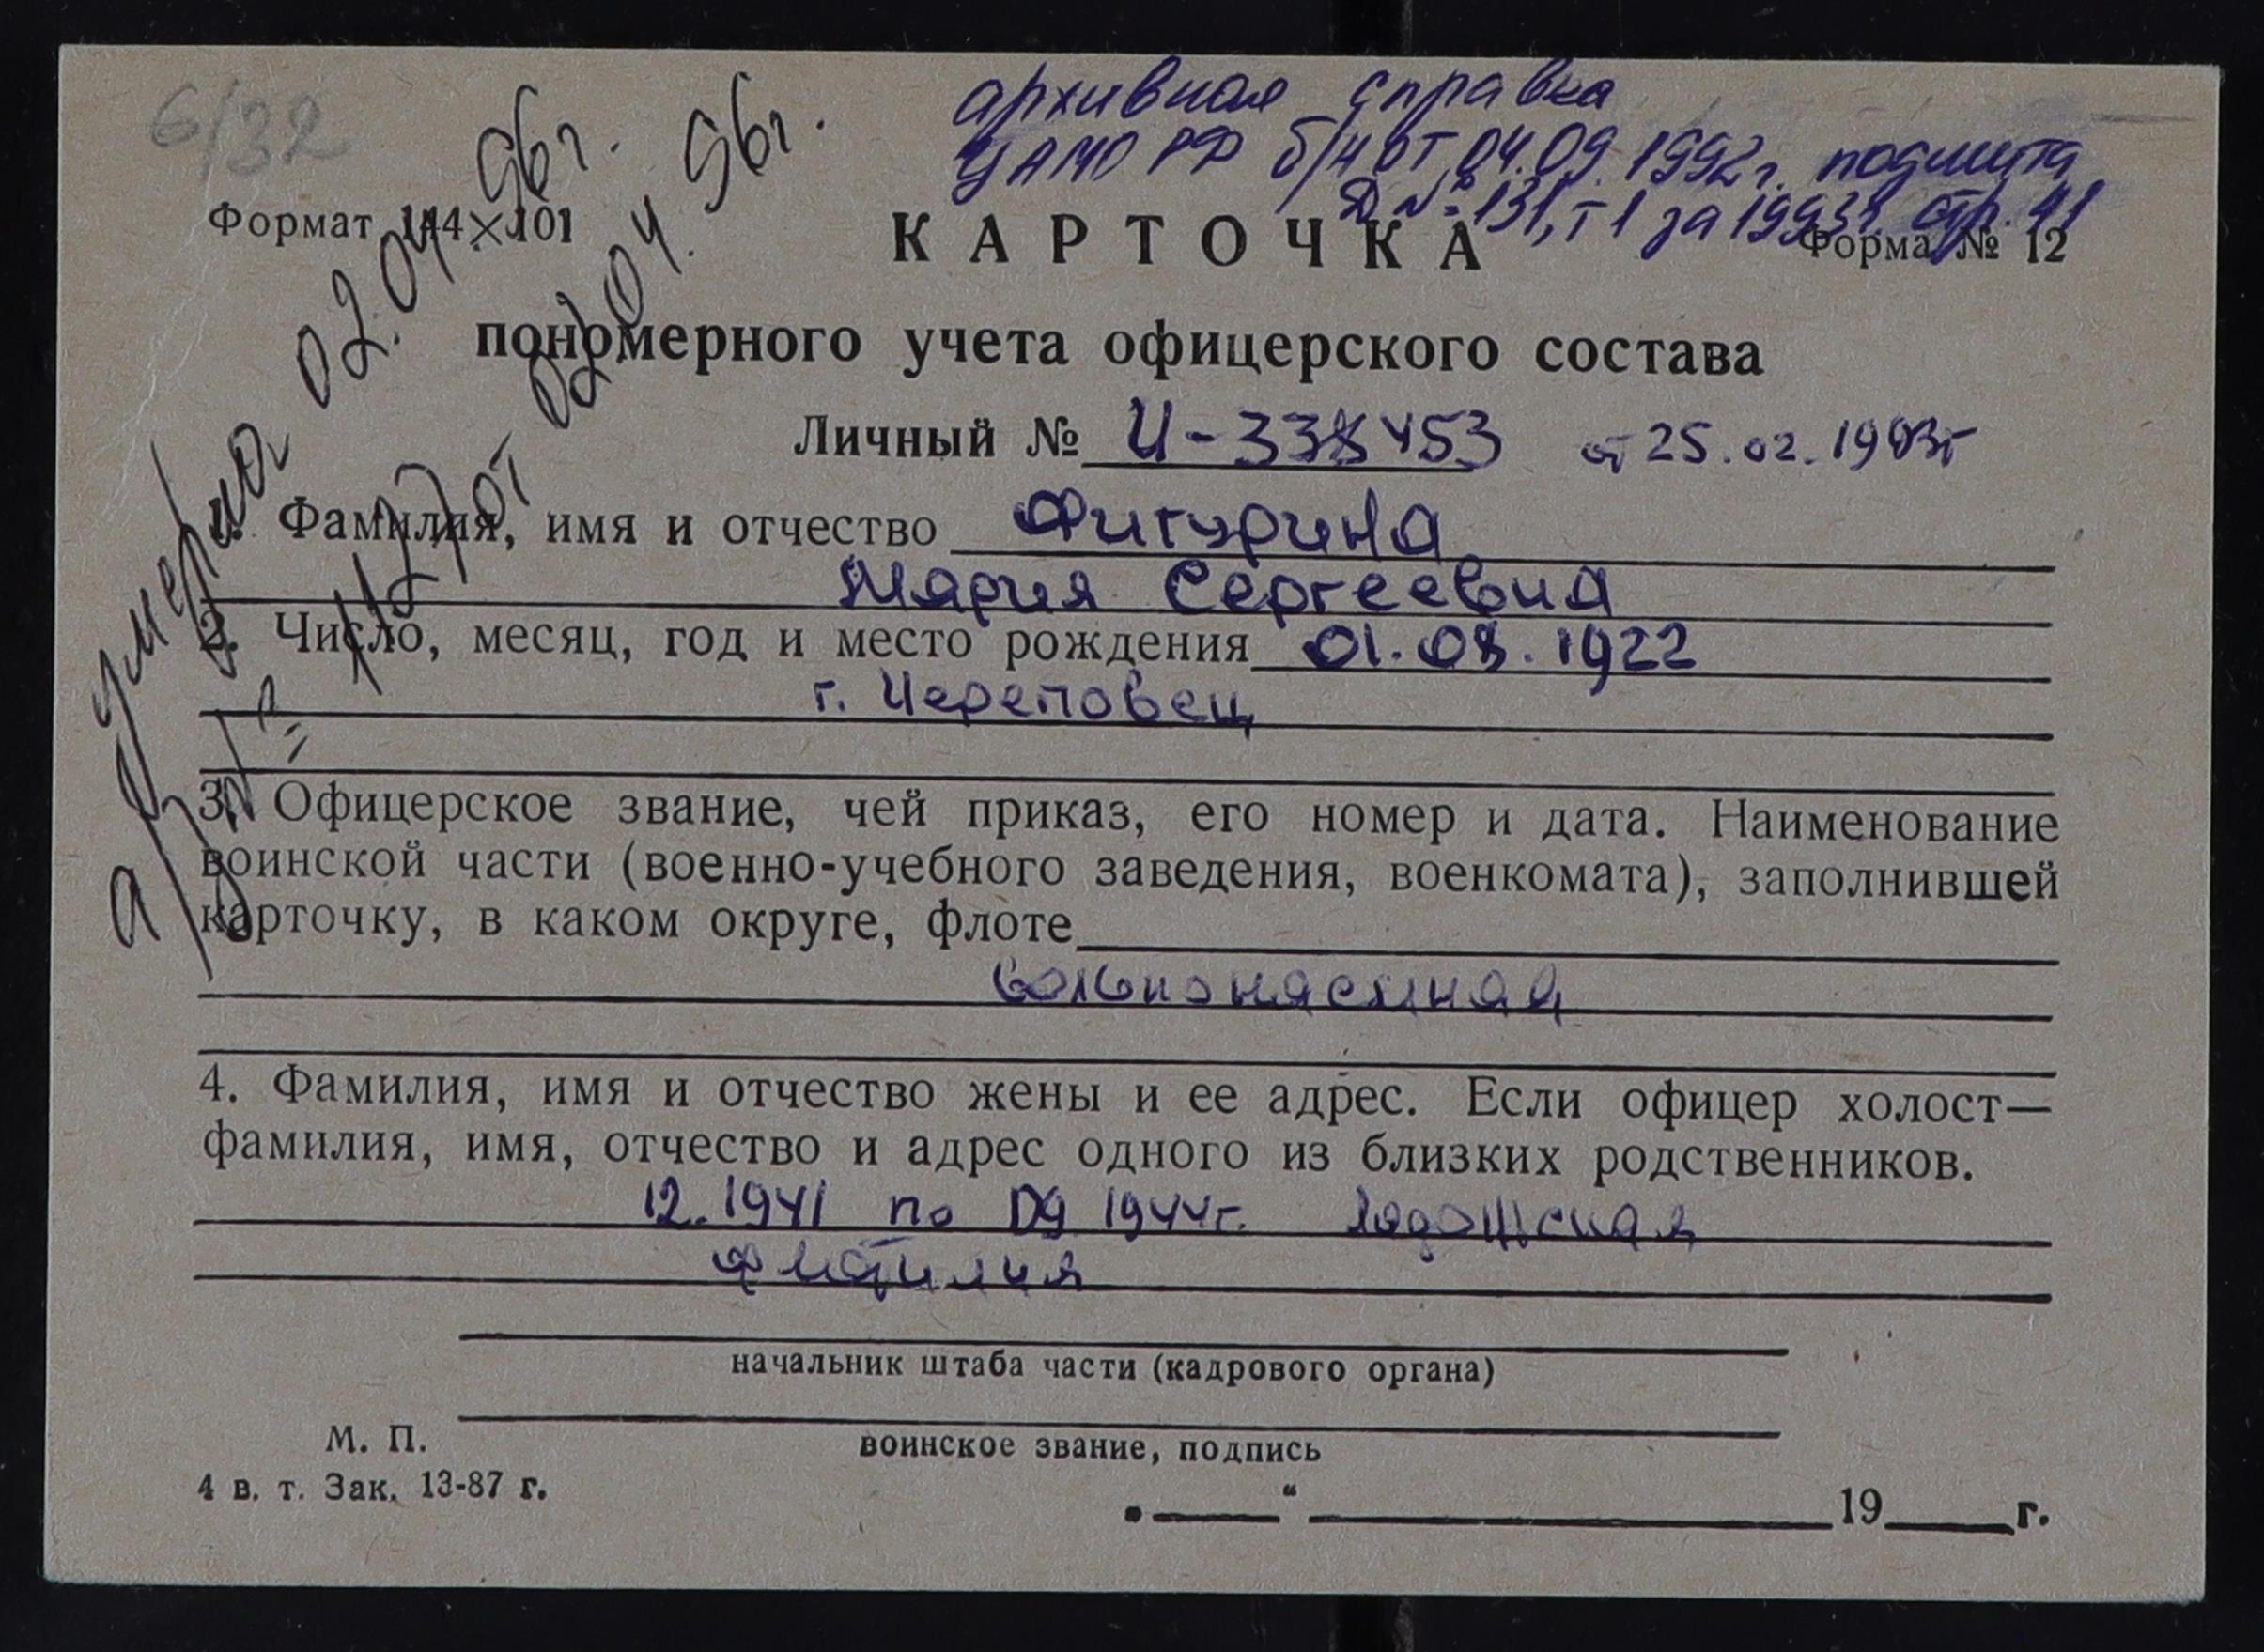 6/32
архивная справка
ЦАМО РФ б/н от 04.09.1992г. подшита
Д №: 131, т 1 за 1993г. стр. 41
Формат 144×101
КАРТОЧКА
Форма № 12
пономерного учета офицерского состава
Личный № И-338453 от 25.02.1993г
1. Фамилия, имя и отчество Фигурина
Мария Сергеевна
2. Число, месяц, год и место рождения 01.08.1922
г. Череповец
3. Офицерское звание, чей приказ, его номер и дата. Наименование
воинской части (военно-учебного заведения, военкомата), заполнившей
карточку, в каком округе, флоте
вольнонаемная
4. Фамилия, имя и отчество жены и ее адрес. Если офицер холост—
фамилия, имя, отчество и адрес одного из близких родственников.
12.1941 по 09 1944г. Ладожская
флотилия
начальник штаба части (кадрового органа)
М. П.
воинское звание, подпись
4 в. т. Зак. 13-87 г.
„ “ 19 г.
умерла 02.04.96г.
от 02.04.96г.